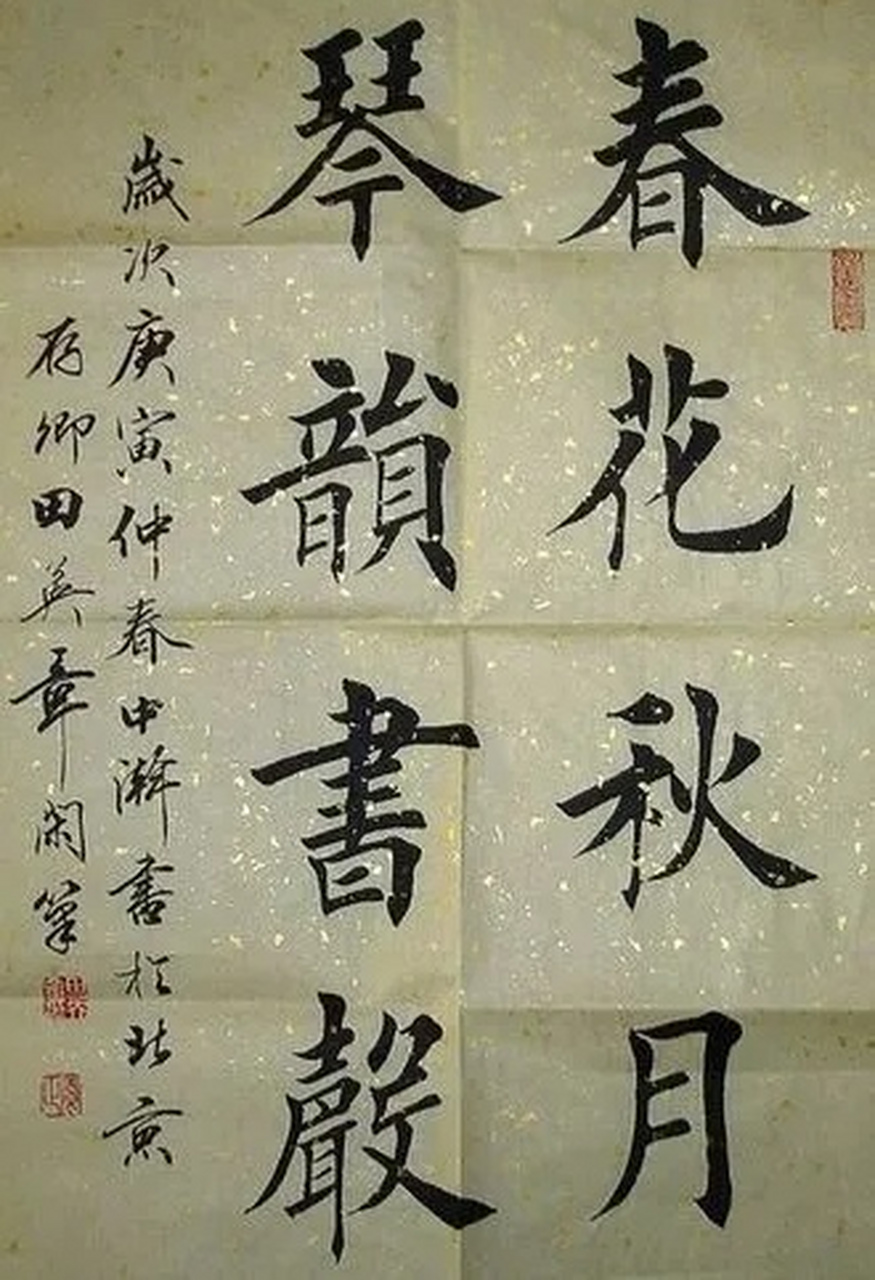 春花秋月
琴韻書聲
歲次庚寅仲春中澣書於北京
存卿田英章闲筆